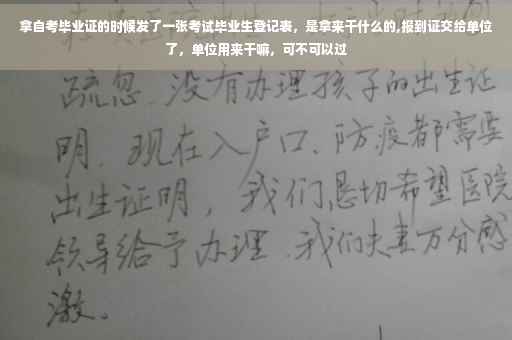 拿自考毕业证的时候发了一张考试毕业生登记表，是拿来干什么的,报到证交给单位
了，单位用来干嘛，可不可以过
疏忽、没有办理孩子的出生证
明、现在入户口、防疫都需要
出生证明，我们恳切希望医院
领导给予办理、我们夫妻万分感
激。